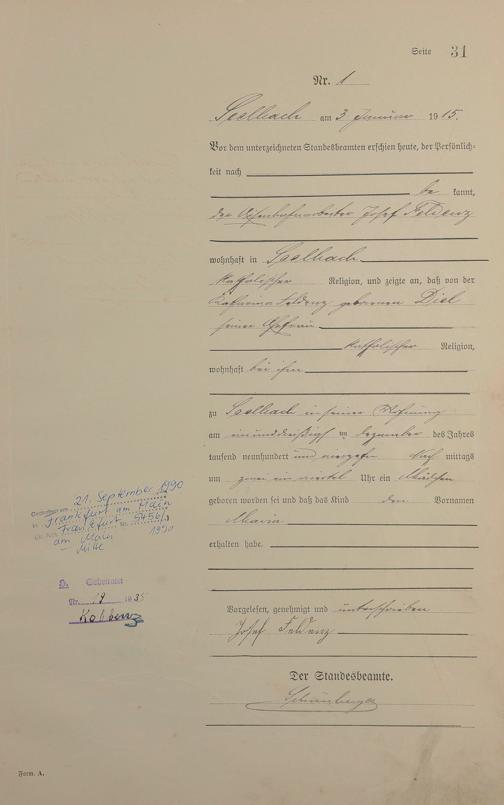 Seite 31
Nr. 1
Seelbach am 3 Januar 1915.
Vor dem unterzeichneten Standesbeamten erschien heute, der Persönlich-
keit nach
be kannt,
der Josef Feldenz
wohnhaft in Seelbach
katholischer Religion, und zeigte an, daß von der
Katharina Feldenz geborenen Diel
seiner Ehefrau
katholischer Religion,
wohnhaft bei ihm
zu Seelbach in seiner Wohnung
am einunddreißigsten Dezember des Jahres
tausend neunhundert und vierzehn Nach mittags
um zwei ein viertel Uhr ein Mädchen
geboren worden sei und daß das Kind den Vornamen
Maria
erhalten habe.
21. September 1990
Frankfurt am Main
Frankfurt 5456/1
am Main 1990
– Mitte
H. Geheiratet
Nr. 19 1935
Koblenz
Vorgelesen, genehmigt und unterschrieben
Josef Feldenz
Der Standesbeamte.
Form. A.